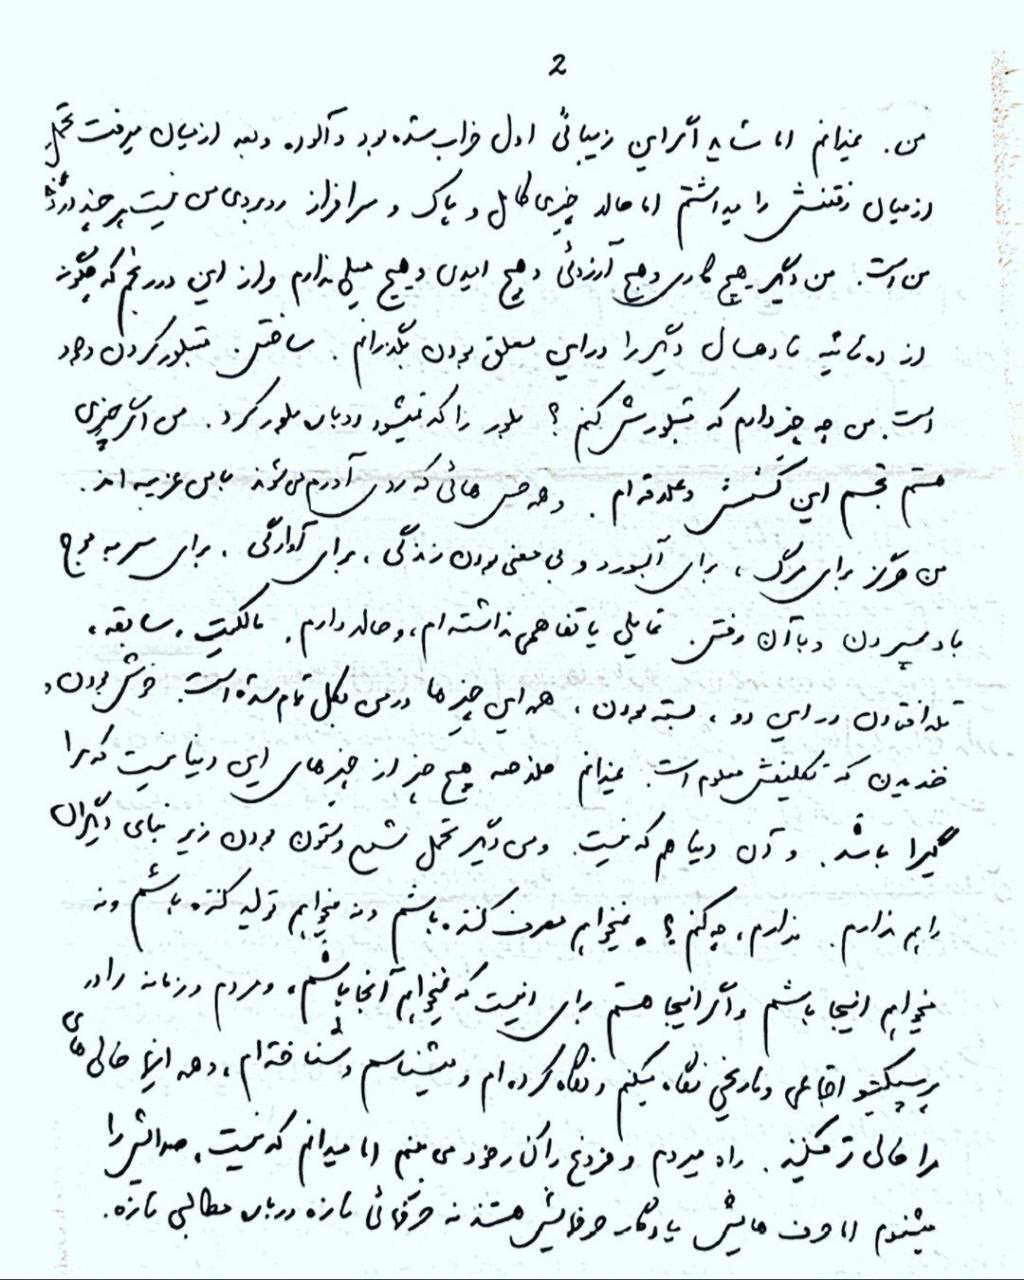 2
من. نمیدانم اما شاید اگر این زیبائی اول خراب شده بود و آلوده و بعد از میان میرفت تحمل
از میان رفتنش را میداشتم اما حالا چیزی کامل و پاک و سرافراز روبروی من نیست هر چند در
من است. من دیگر هیچ کاری و هیچ آرزوئی و هیچ امیدی و هیچ میلی ندارم و از این در رنجم که چگونه
از ده ثانیه تا دهسال دیگر را در این معلق بودن بگذرانم. ساختن. متبلور کردن وجود
است. من چه چیز دارم که متبلورش کنم؟ بلور را که نمیشود دوباره بلور کرد. من اگر چیزی
هستم تجسم این کشش و علاقه ام. و همه حس هائی که روی آورم می شوند با من غریبه اند.
من هرگز برای مرگ، برای آبسورد و بی معنی بودن زندگی، برای آوارگی. برای سر به موج
باد سپردن و با آن رفتن. تمایلی یا تفاهمی نداشته ام، و حالا دارم. مالکیت. سابقه،
تله افتادن در این دو، بسته بودن، همه این چیزها در من بکل تمام شده است. خوش بودن،
خندیدن که تکلیفش معلوم است. نمیدانم خلاصه هیچ چیز از چیزهای این دنیا نیست که مرا
گیرا باشد. و آن دنیا هم که نیست. و من دیگر تحمل شمع و ستون بودن زیر بنای دیگران
را هم ندارم. ندارم، چه کنم؟. نمیخواهم مصرف کننده باشم و نه میخواهم تولید کننده باشم و نه
میخواهم اینجا باشم و اگر اینجا هستم برای اینست که نمیخواهم آنجا باشم، و مردم و زمانه را در
پرسپکتیو اجتماعی و تاریخی نگاه میکنم و نگاه کرده ام و میشناسم و شناخته ام، و همه اینها خالی های
مرا خالی تر میکنند. راه میروم و فروغ را کنار خود می بینم اما میدانم که نیست. صدایش را
میشنوم اما حرف هایش یادگار حرفهایش هستند نه حرفهائی تازه درباره مطالبی تازه.